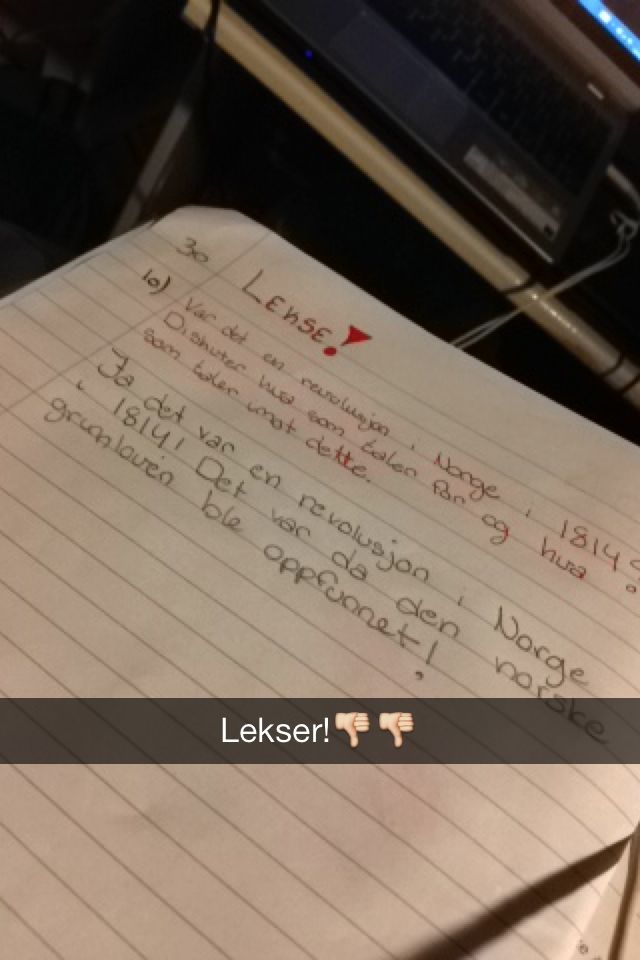 30
LEKSE!
10) Var det en revolusjon i Norge i 1814?
Diskuter hva som taler for og hva
som taler imot dette.
Ja det var en revolusjon i Norge
i 1814! Det var da den norske
grunnloven ble oppfunnet!
Lekser!👎🏻👎🏻